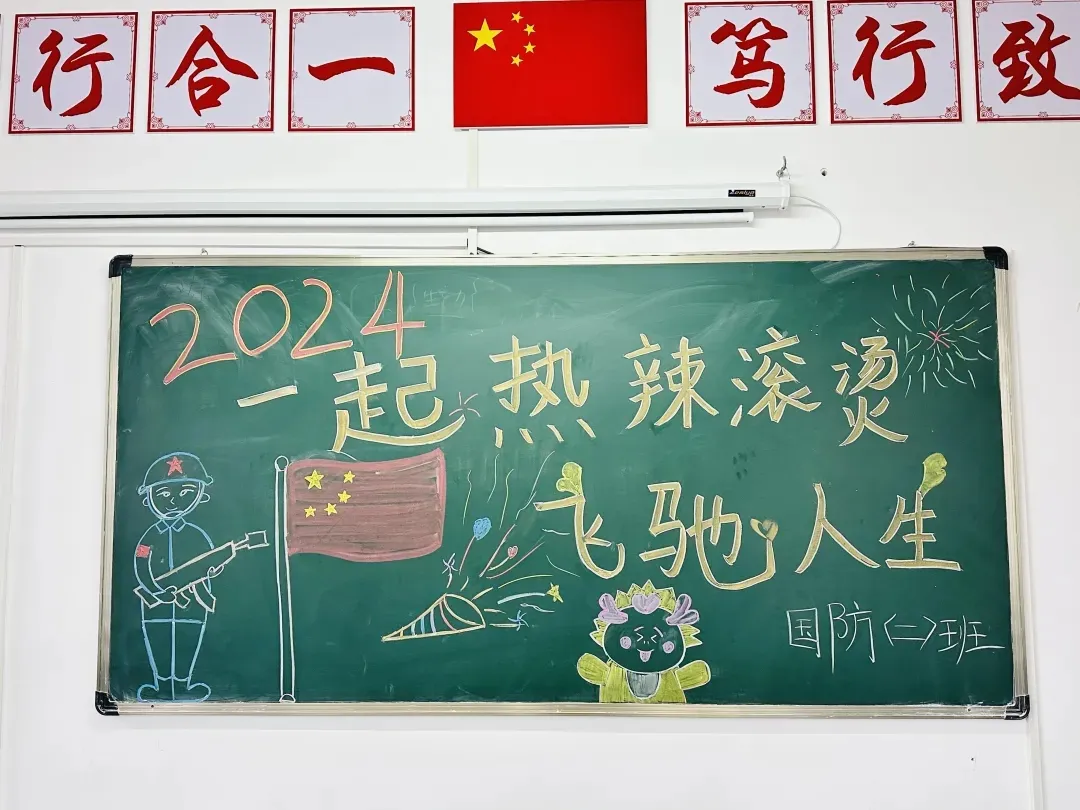 行合一 笃行致
2024
一起热辣滚烫
飞驰人生
国防(二)班